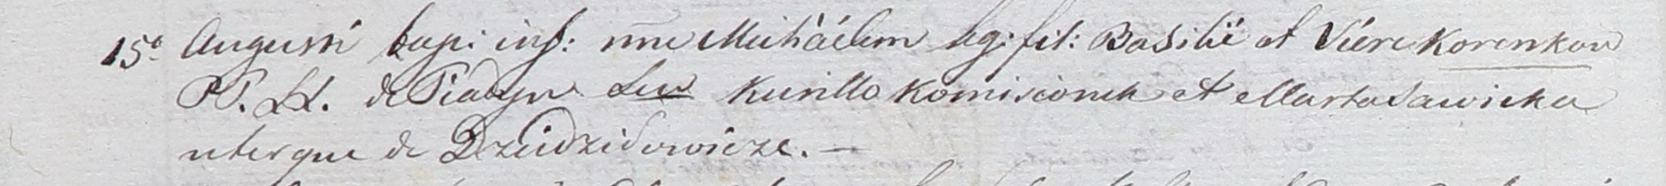 15º Augusti bapi: inf: nne Michäelem leg: fil: Basilii et Viere Korenkow
PP. LL. de Piadyn Luu Kurillo Komisionek et Marta Sawicka
uterque de Dziedzidowicze. —